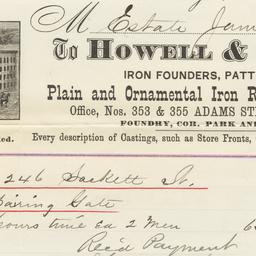 M Estate Jam
To HOWELL &
IRON FOUNDERS, PATT
Plain and Ornamental Iron R
Office, Nos. 353 & 355 ADAMS ST
FOUNDRY, COR. PARK AN
ed. Every description of Castings, such as Store Fronts,
246 Sackett St.
pairing Gate
hours time Ea 2 Men 6
Rec'd Payment